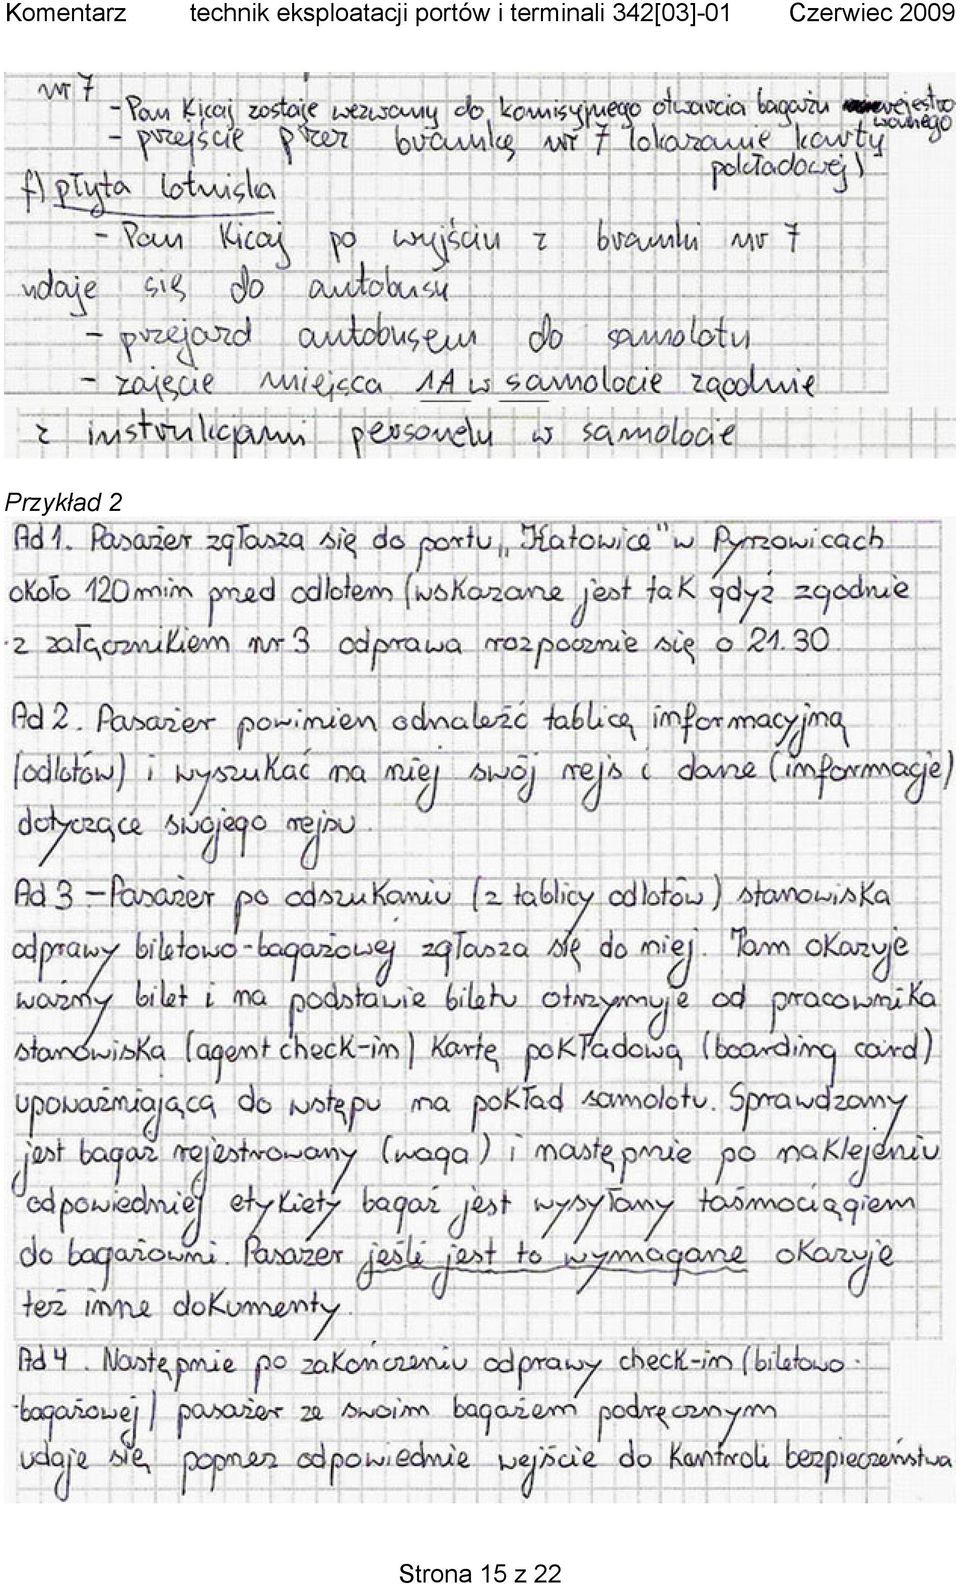 Komentarz technik eksploatacji portów i terminali 342[03]-01 Czerwiec 2009
nr 7
- Pan Kicaj zostaje wezwany do komisyjnego otwarcia bagażu rejestro
wanego
- przejście przez bramkę nr 7 (okazanie karty
pokładowej)
f) płyta lotniska
- Pan Kicaj po wyjściu z bramki nr 7
udaje się do autobusu
- przejazd autobusem do samolotu
- zajęcie miejsca 1A w samolocie zgodnie
z instrukcjami personelu w samolocie
Przykład 2
Ad 1. Pasażer zgłasza się do portu „Katowice" w Pyrzowicach
około 120 min przed odlotem (wskazane jest tak gdyż zgodnie
z załącznikiem nr 3 odprawa rozpocznie się o 21.30.
Ad 2. Pasażer powinien odnaleźć tablicę informacyjną
(odlotów) i wyszukać na niej swój rejs i dane (informacje)
dotyczące swojego rejsu.
Ad 3 – Pasażer po odszukaniu (z tablicy odlotów) stanowiska
odprawy biletowo-bagażowej zgłasza się do niej. Tam okazuje
ważny bilet i na podstawie biletu otrzymuje od pracownika
stanowiska (agent check-in) kartę pokładową (boarding card)
upoważniającą do wstępu na pokład samolotu. Sprawdzany
jest bagaż rejestrowany (waga) i następnie po naklejeniu
odpowiedniej etykiety bagaż jest wysyłany taśmociągiem
do bagażowni. Pasażer jeśli jest to wymagane okazuje
też inne dokumenty.
Ad 4. Następnie po zakończeniu odprawy check-in (biletowo-
-bagażowej) pasażer ze swoim bagażem podręcznym
udaje się poprzez odpowiednie wejście do kontroli bezpieczeństwa
Strona 15 z 22